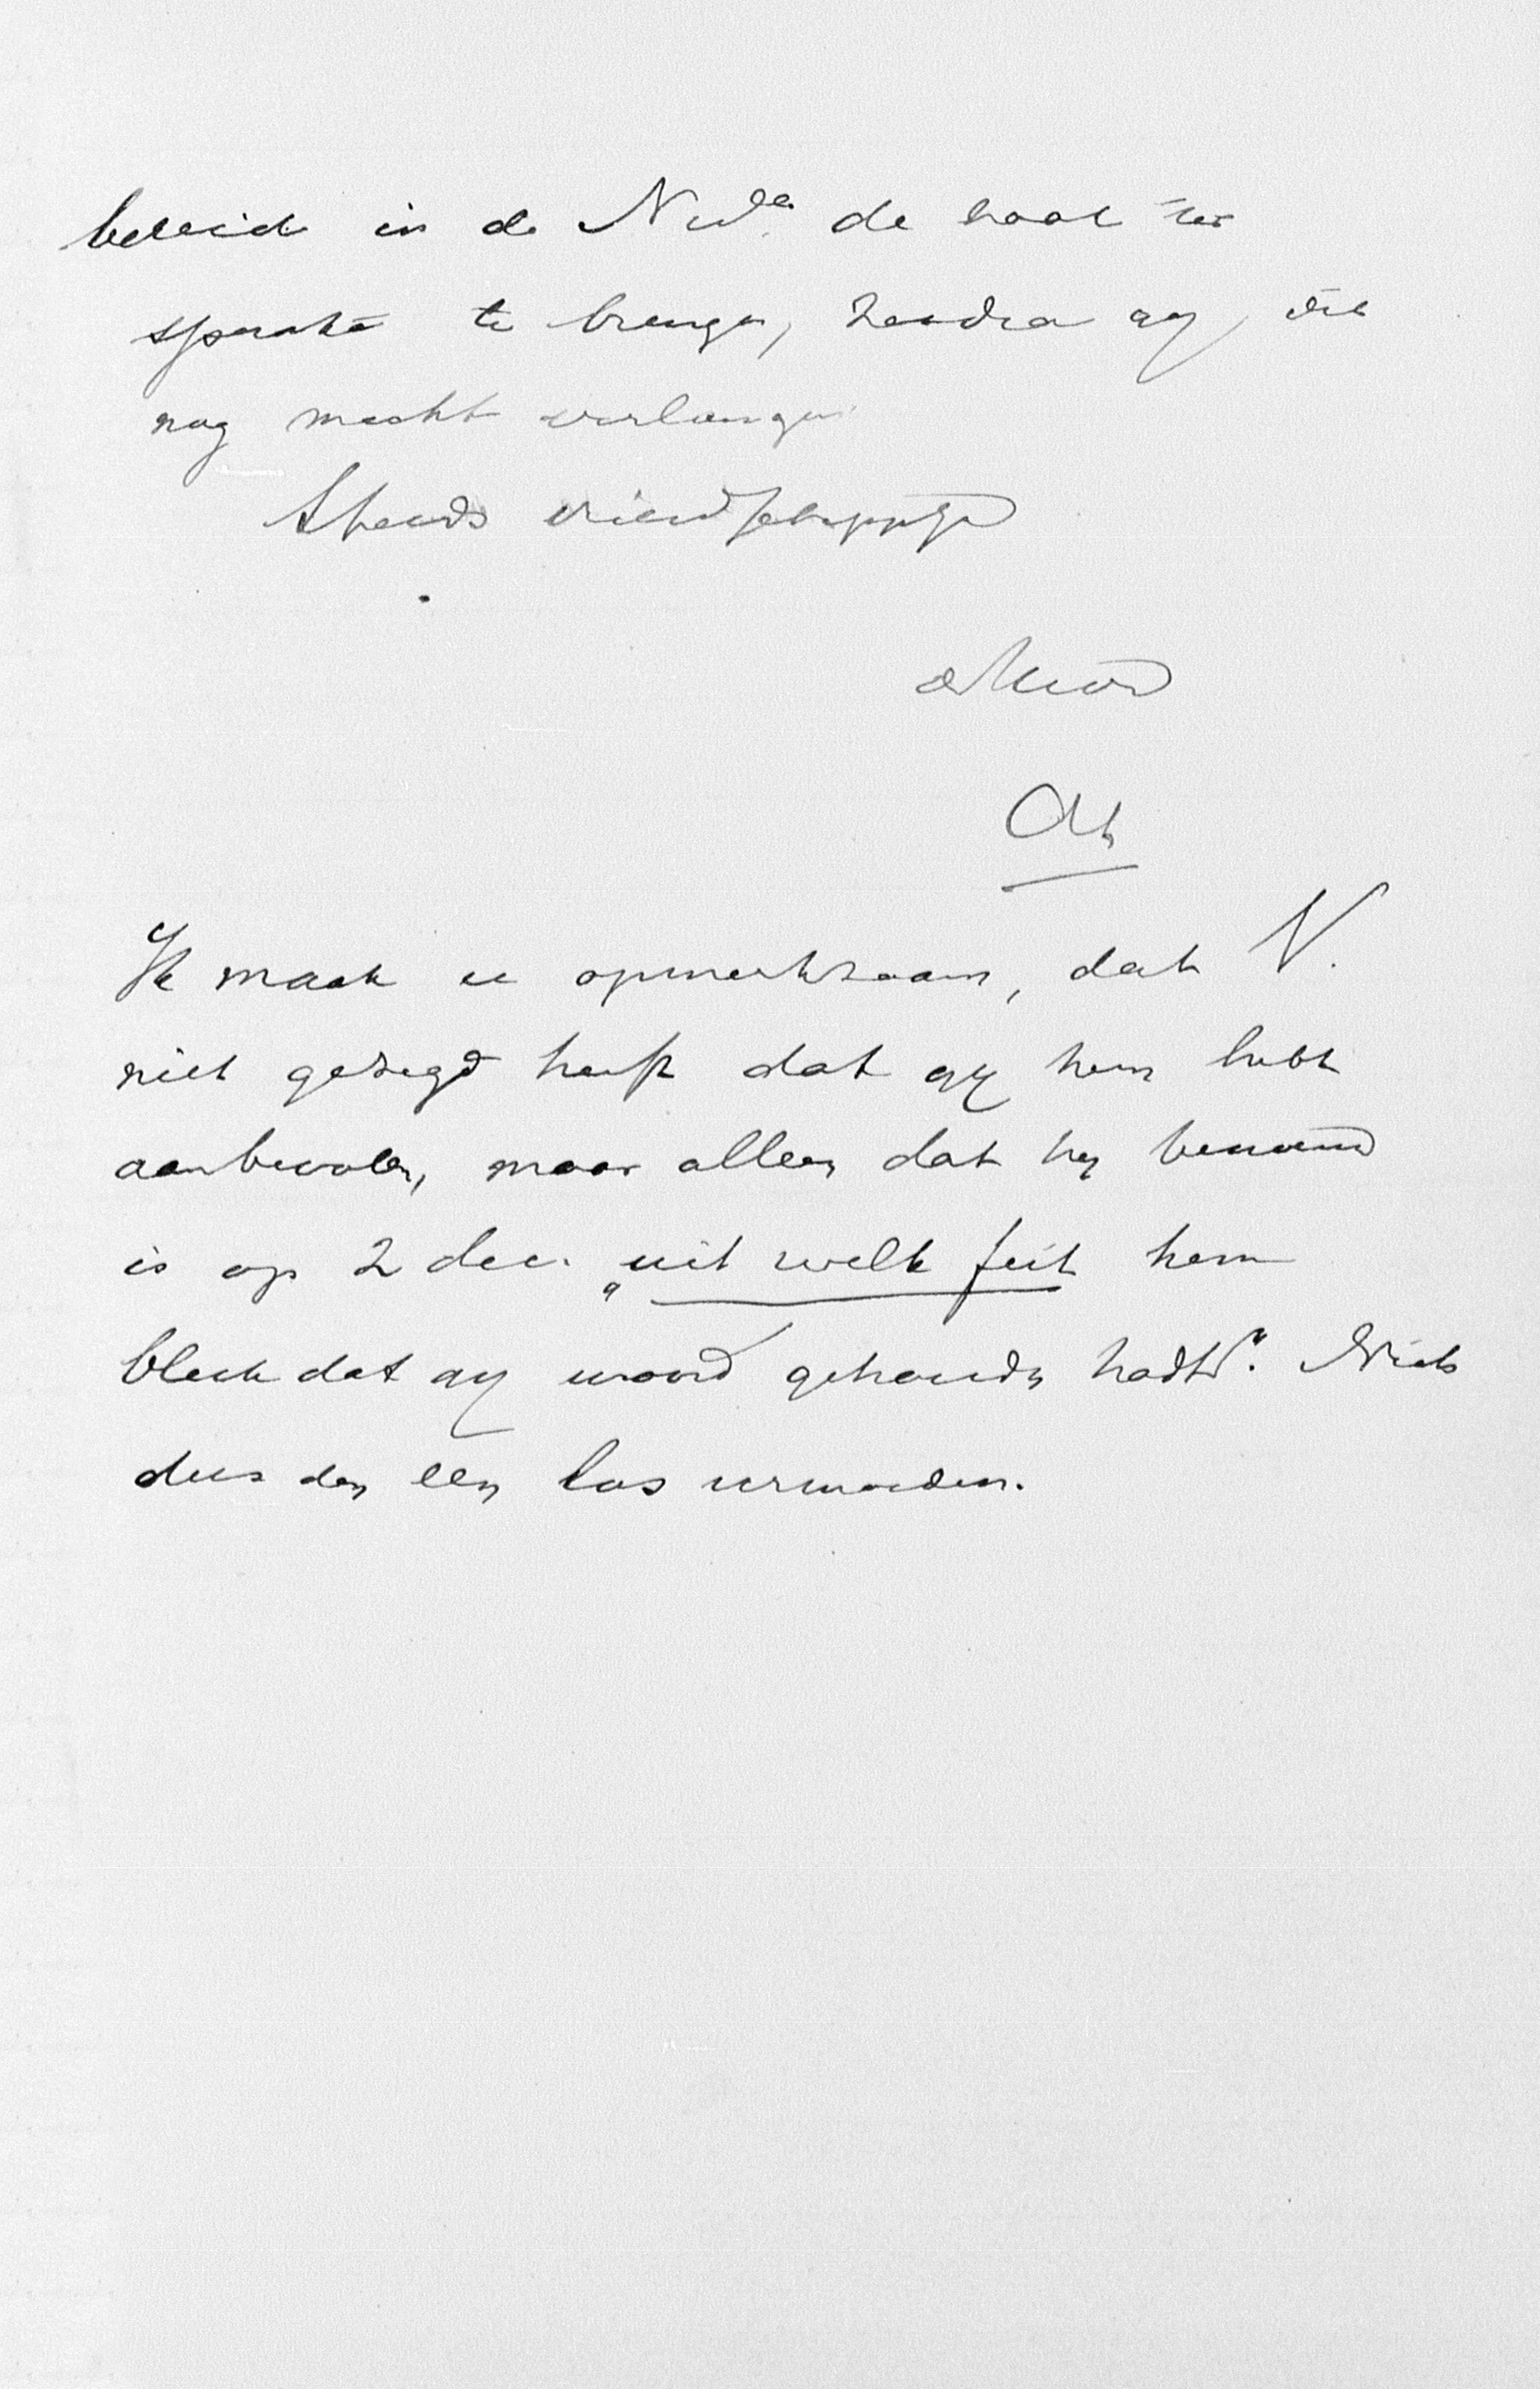 bereid in de de zaak ter
sprake te brengen, zoodra gij dit
nog mocht verlangen
Steeds vriendschappelijk
Ik maak u opmerkzaam, dat N.
niet gezegd heeft dat gij hem hebt
aanbevolen, maar alleen dat hij benoemd
is op 2 dec. „uit welk feit hem
bleek dat gij woord gehouden hadt”. Niets
dus dan een los vermoeden.